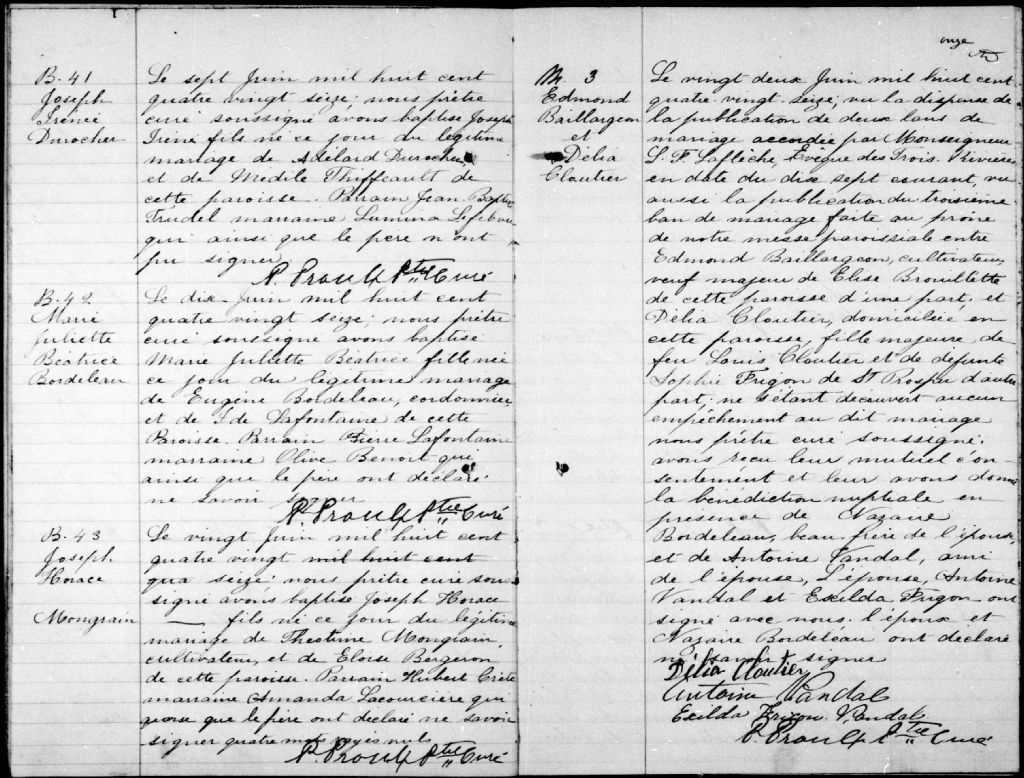 B. 41
Joseph
Irénée
Durocher
Le sept Juin mil huit cent
quatre vingt seize; nous prêtre
curé soussigné avons baptisé Joseph
Iréné fils né ce jour du légitime
mariage de Adélard Durocher
et de Médile Thiffeault de
cette paroisse. Parrain Jean Bapte
Trudel marraine Lumina Lefebvre
qui ainsi que le père n'ont
pu signer
P. Proulx Ptre Curé
B. 42
Marie
Juliette
Béatrice
Bordeleau
Le dix Juin mil huit cent
quatre vingt seize; nous prêtre
curé soussigné avons baptisé
Marie Juliette Béatrice fille née
ce jour du légitime mariage
de Eugène Bordeleau, cordonnier
et de Ida Lafontaine de cette
Paroisse. Parrain Pierre Lafontaine
marraine Olive Benoit qui
ainsi que le père ont déclaré
ne savoir signer
P. Proulx Ptre Curé
B. 43
Joseph
Horace
Mongrain
Le vingt Juin mil huit cent
quatre vingt mil huit cent
qua seize: nous prêtre curé sous-
signé avons baptisé Joseph Horace
— fils né ce jour du légitime
mariage de Théotime Mongrain,
cultivateur, et de Eloise Bergeron
de cette paroisse. Parrain Hubert Crête
marraine Amanda Lacourcière qui
que le père ont déclaré ne savoir
signer quatre mots rayés nuls
P. Proulx Ptre Curé
onze
M. 3
Edmond
Baillargeon
et
Délia
Cloutier
Le vingt deux Juin mil huit cent
quatre-vingt-seize, vu la dispense de
la publication de deux bans de
mariage accordée par Monseigneur
L. F. Laflèche, Evèque des Trois-Rivières
en date du dix sept courant, vu
aussi la publication du troisième
ban de mariage faite au prône
de notre messe paroissiale entre
Edmond Baillargeon, cultivateur,
veuf majeur de Elise Brouillette
de cette paroisse d'une part, et
Délia Cloutier, domiciliée en
cette paroisse, fille majeure, de
feu Louis Cloutier et de défunte
Sophie Frigon de St Prosper d'autre
part; ne s'étant découvert aucun
empêchement au dit mariage
nous prêtre curé soussigné,
avons recu leur mutuel con-
sentement et leur avons donné
la bénédiction nuptiale en
présence de Nazaire
Bordeleau, beau-frère de l'époux,
et de Antoine Vandal, ami
de l'épouse, L'épouse, Antoine
Vandal et Exilda Frigon ont
signé avec nous. l'époux et
Nazaire Bordeleau ont déclaré
ne savoir signer
Délia Cloutier
Antoine Vandal
Exilda Frigon Vandal
P. Proulx Ptre Curé